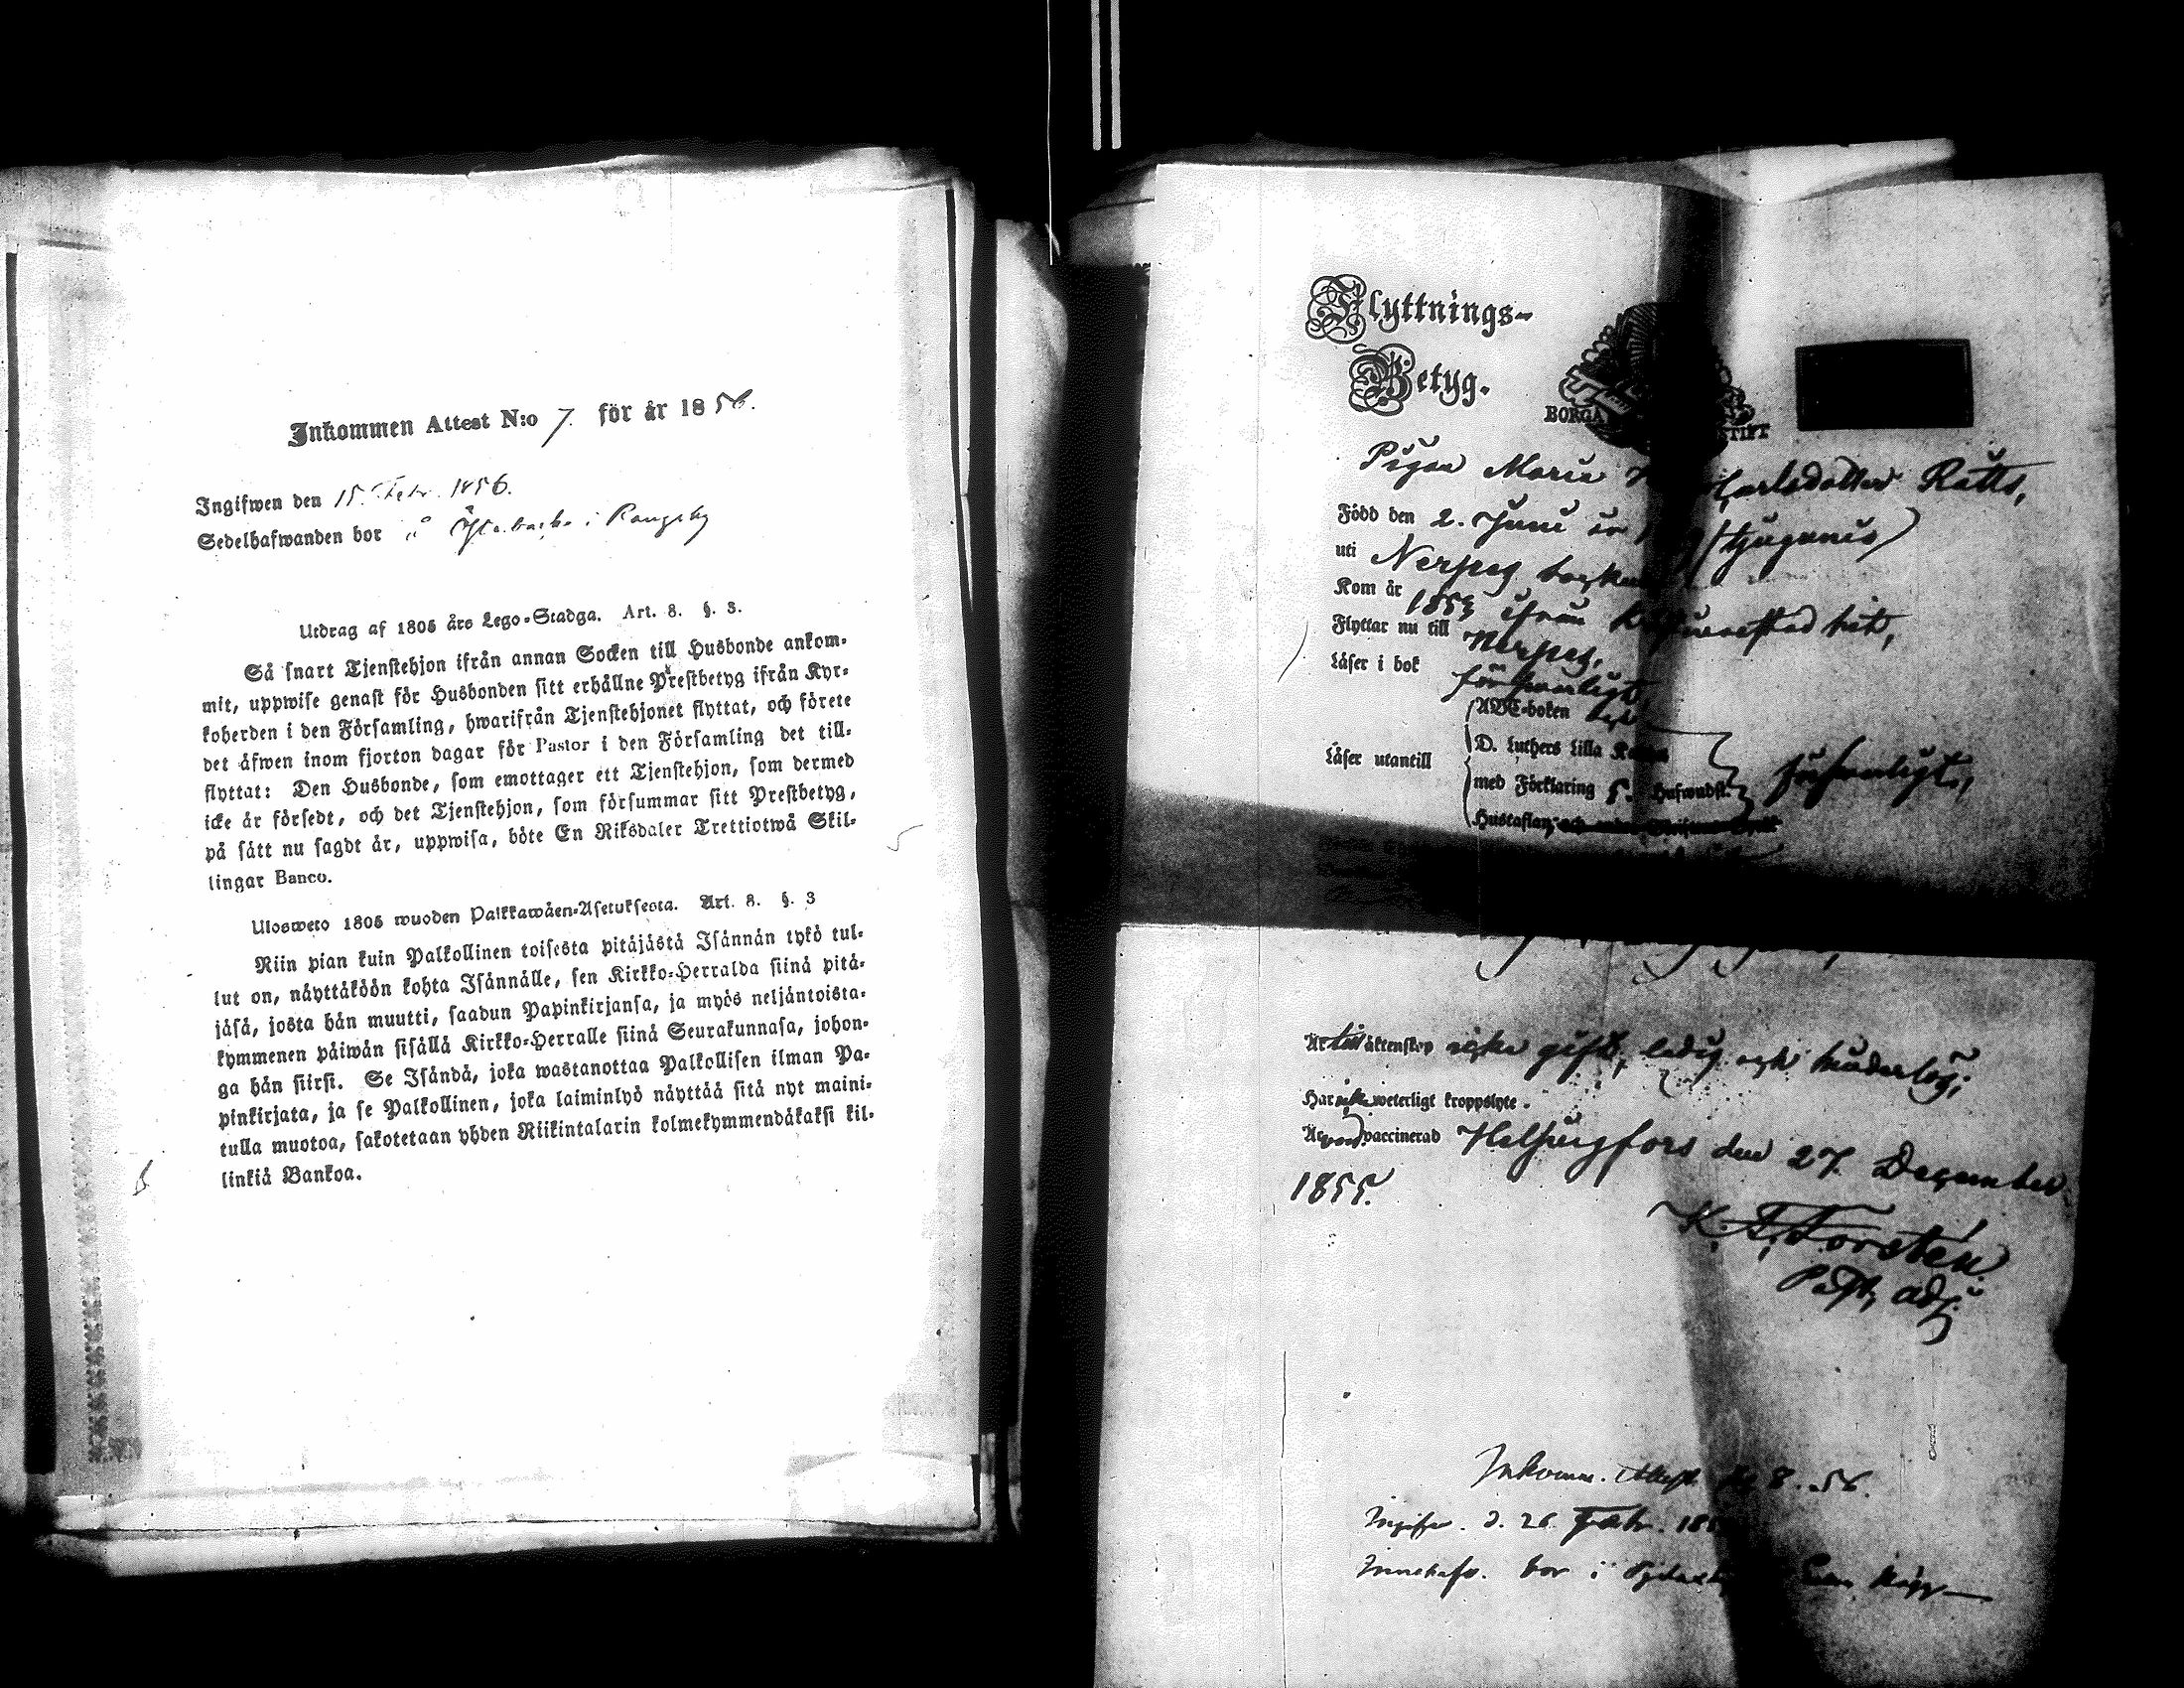 Inkommen Attest N:o 7. för år 1856.
Ingifwen den 15. Febr. 1856.
Sedelhafwanden bor å i Rangsby
Utdrag af 1805 års Lego-Stadga. Art. 8. §. 3.
Så snart Tjenstehjon ifrån annan Socken till Husbonde ankom-
mit, uppwise genast för Husbonden sitt erhållne Prestbetyg ifrån Kyr-
koherden i den Församling, hwarifrån Tjenstehjonet flyttat, och förete
det äfwen inom fjorton dagar för Pastor i den Församling det till-
flyttat: Den Husbonde, som emottager ett Tjenstehjon, som dermed
icke är försedt, och det Tjenstehjon, som försummar sitt Prestbetyg,
på sätt nu sagdt är, uppwisa, böte En Riksdaler Trettiotwå Skil-
lingar Banco.
Ulosweto 1805 wuoden Palkkawäen-Asetuksesta. Art. 8. §. 3
Niin pian kuin Palkollinen toisesta pitäjästä Isännän tykö tul-
lut on, näyttäköön kohta Isännälle, sen Kirkko-Herralda siinä pitä-
jäsä, josta hän muutti, saadun Papinkirjansa, ja myös neljäntoista-
kymmenen päiwän sisällä Kirkko-Herralle siinä Seurakunnasa, johon-
ga hän siirsi. Se Isändä, joka wastanottaa Palkollisen ilman Pa-
pinkirjata, ja se Palkollinen, joka laiminlyö näyttää sitä nyt maini-
tulla muotoa, sakotetaan yhden Riikintalarin kolmekymmendäkaksi kil-
linkiä Bankoa.
Flyttnings-
Betyg.
BORGÅ STIFT
Pigan Maria Carlsdotter Rätts,
Född den 2. Juni år (tjugunio)
uti Nerpes socken
Kom år 1853 ifrån hit,
Flyttar nu till Nerpes,
Läser i bok försvarligt
Läser utantill
ABC-boken
D. Luthers Lilla
med Förklaring 5. Hufwudst.
försvarligt,
Hustaflan
Är till äktenskap icke gift, ledig och hinderlös;
Har icke weterligt kroppslyte.
Är vaccinerad Helsingfors den 27. December
1855.
K. T. Forstén.
Past. adj.
Inkomm. Attest 8. 56.
Ingifv. d. 26. Febr. 18
Innehafv. bor i